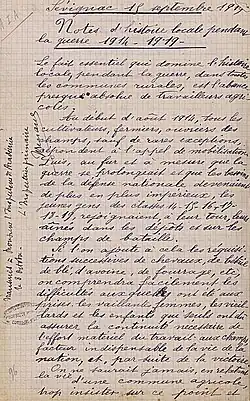 Sévignac 15 septembre 1919
Notes d'histoire locale pendant
la guerre 1914-1919-
Le fait essentiel qui domine l'histoire
locale, pendant la guerre, dans toutes
les communes rurales, est l'absence
presque absolue de travailleurs agri-
coles.
Au début d'août 1914, tous les
cultivateurs, fermiers, ouvriers des
champs, sauf de rares exceptions,
répondent à l'appel de mobilisation.
Puis, au fur et à mesure que la
guerre se prolongeait et que les besoins
de la défense nationale devenaient
de plus en plus impérieux, les
jeunes gens des classes 14-15-16-17-
18-19, rejoignaient à leur tour leurs
aînés dans les dépôts et sur les
champs de bataille.
Si l'on ajoute à cela les réquisi-
tions successives de chevaux, de bétail,
de blé, d'avoine, de fourrage, etc,
on comprendra facilement les
difficultés auxquelles ont été aux
prises les vaillantes femmes, les vieil-
lards et les enfants qui seuls ont dû
assurer la continuité nécessaire de
l'effort matériel du travail aux champs,
facteur indispensable de la vie de la
nation, et, par suite de la victoire.
On ne saurait jamais, en relatant
la vie d'une commune agricole
trop insister sur ce point et
Transmis à Monsieur l'Inspecteur d'Académie
L'Inspecteur primaire